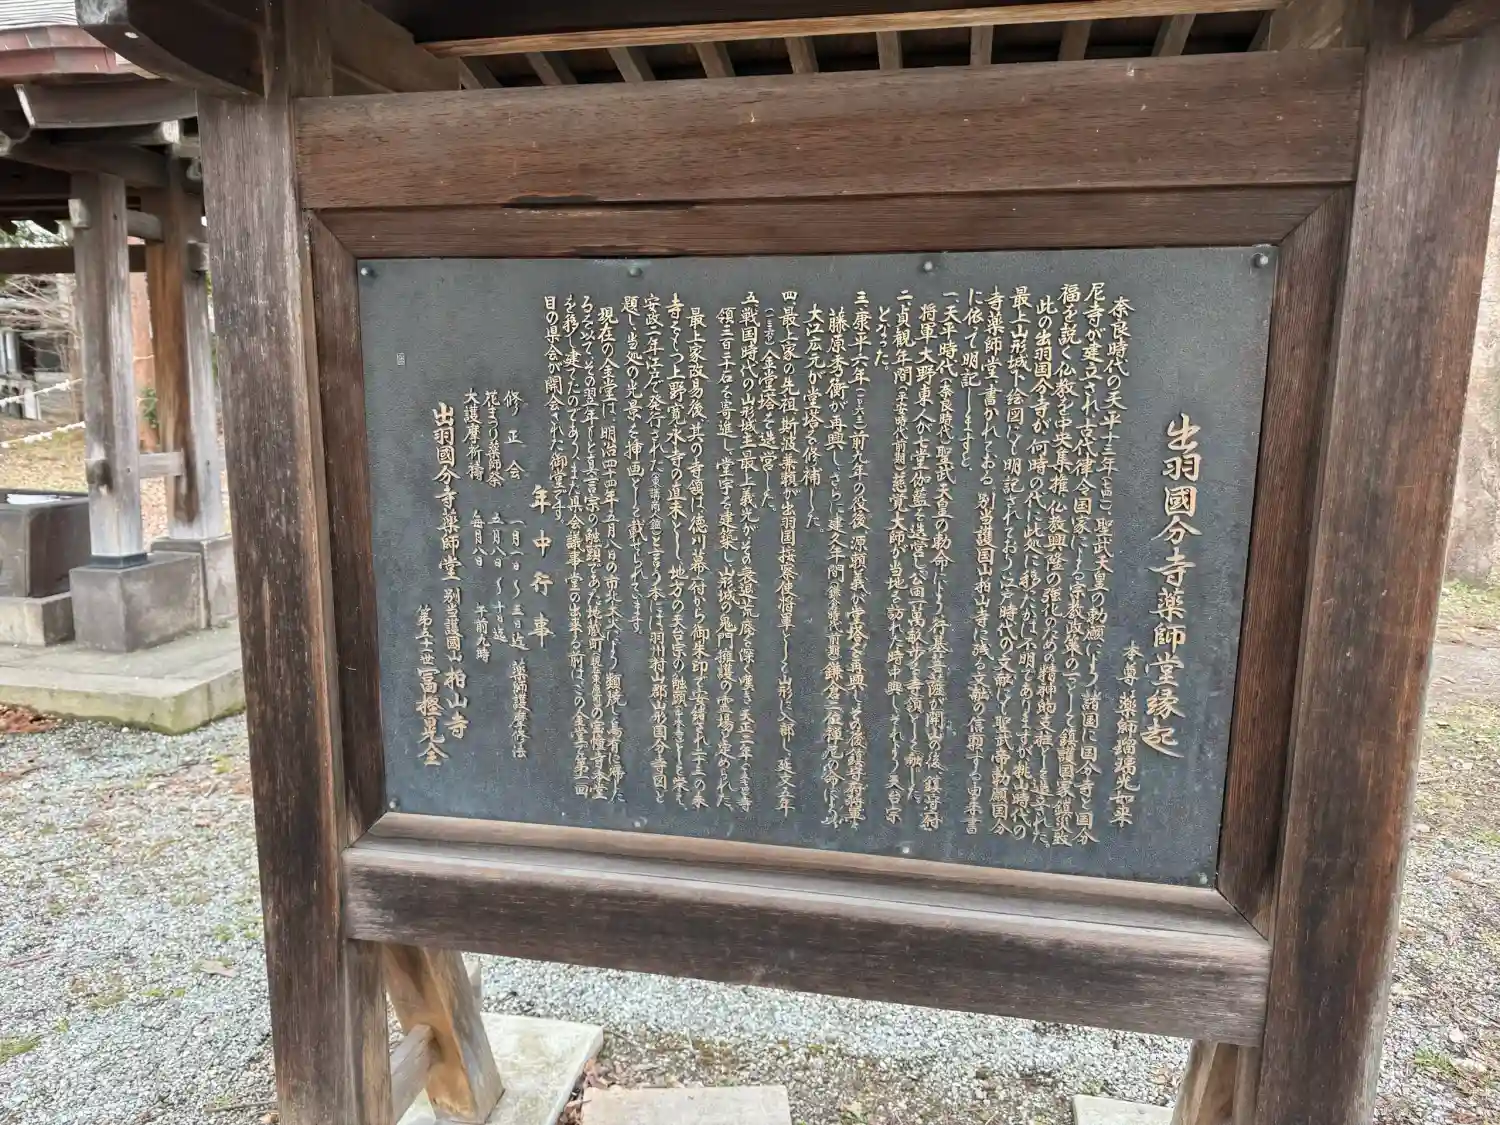 出羽國分寺薬師堂縁起
本尊 薬師瑠璃光如来
奈良時代の天平十三年(七四一)、聖武天皇の勅願により、諸国に国分寺と国分
尼寺が建立され古代律令国家による宗教政策の一つとして鎮護国家鎮災致
福を説く仏教を中央集権仏教興隆の強化のための精神的支柱として造立された。
此の出羽国分寺が何時の代に此処に移ったかは不明でありますが、桃山時代の
最上山形城下絵図にも明記されており江戸時代の文献にも聖武帝勅願国分
寺薬師堂と書かれておる。別当護国山柏山寺に残る文献の信頼する由来書
に依って明記しますと、
一、天平時代(奈良時代)聖武天皇の勅命により行基菩薩が開山の後、鎮守府
将軍大野東人が七堂伽藍を造営し公田一萬数歩を寺領として献した。
二、貞観年間(平安時代前期)慈覚大師が当地を訪れた時中興し、それより天台宗
となった。
三、康平六年(一〇六三)前九年の役後、源頼義が堂塔を再興し、その後鎮守府将軍
藤原秀衡が再興し、さらに建久年間(鎌倉時代前期)鎌倉二位禅尼の命により、
大江広元が堂塔を修補した。
四、最上家の先祖、斯波兼頼が出羽国按察使将軍として山形に入部し、延文元年
(一三五六)金堂塔を造営した。
五、戦国時代の山形城主最上義光がその衰退荒廃を深く嘆き、
領二百三十石を寄進し、堂宇を建築し山形城の鬼門擁護の霊場と定められた。
最上家改易後、其の寺領は徳川幕府から御朱印で安緒され、十三の末
寺をもつ上野寛永寺の直末とし、地方の天台宗の触頭として栄え、
安政二年江戸で発行された と言う本には羽州村山郡山形国分寺図と
題し、当処の光景を挿画として載せられてます。
現在の金堂は、明治四十四年五月八日の市北大火により類焼し烏有に帰した
るを以て、その翌年もと真言宗の触頭であった地蔵町 の宝幢寺本堂
を移し建てたのであり、また県会議事堂の出来る前は、この金堂で第一回
目の県会が開会された御堂です。
年中行事
修正会 一月一日〜三日迄 薬師護摩修法
花まつり薬師会 五月八日〜十日迄
大護摩祈祷 毎月八日 午前九時
出羽國分寺薬師堂 別当護國山柏山寺
第五十一世 冨樫晃全